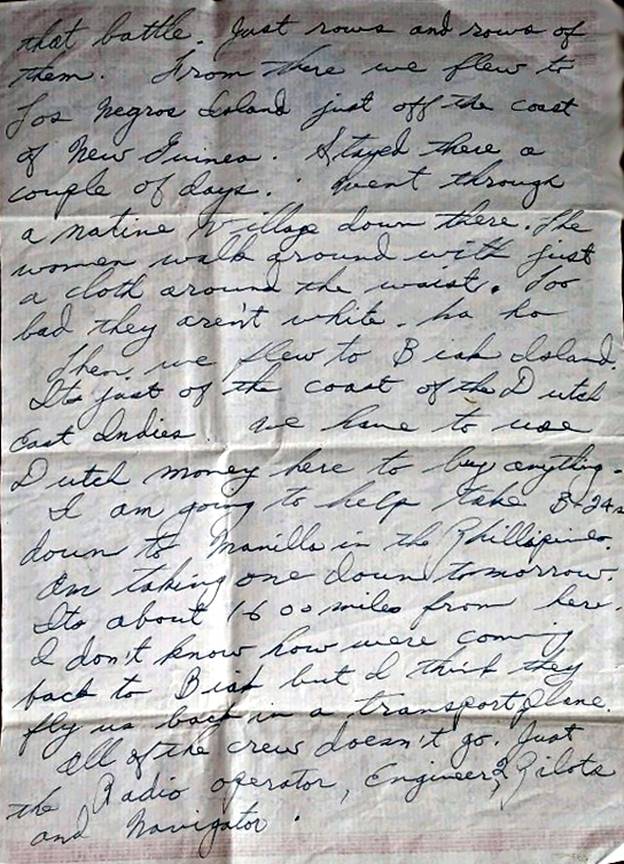 that battle. Just rows and rows of
them. From there we flew to
Los Negros Island just off the coast
of New Guinea. Stayed there a
couple of days. Went through
a native Village down there. The
women walk around with just
a cloth around the waist. Too
bad they aren't white. ha ha
Then we flew to Biak Island.
Its just of the coast of the Dutch
East Indies. We have to use
Dutch money here to buy anything.
I am going to help take B-24s
down to Manilla in the Phillipines.
Am taking one down tomorrow.
Its about 1600 miles from here.
I don't know how were coming
back to Biak but I think they
fly us back in a transport plane.
All of the crew doesn't go. Just
the Radio operator, Engineer, 2 Pilots
and Navigator.